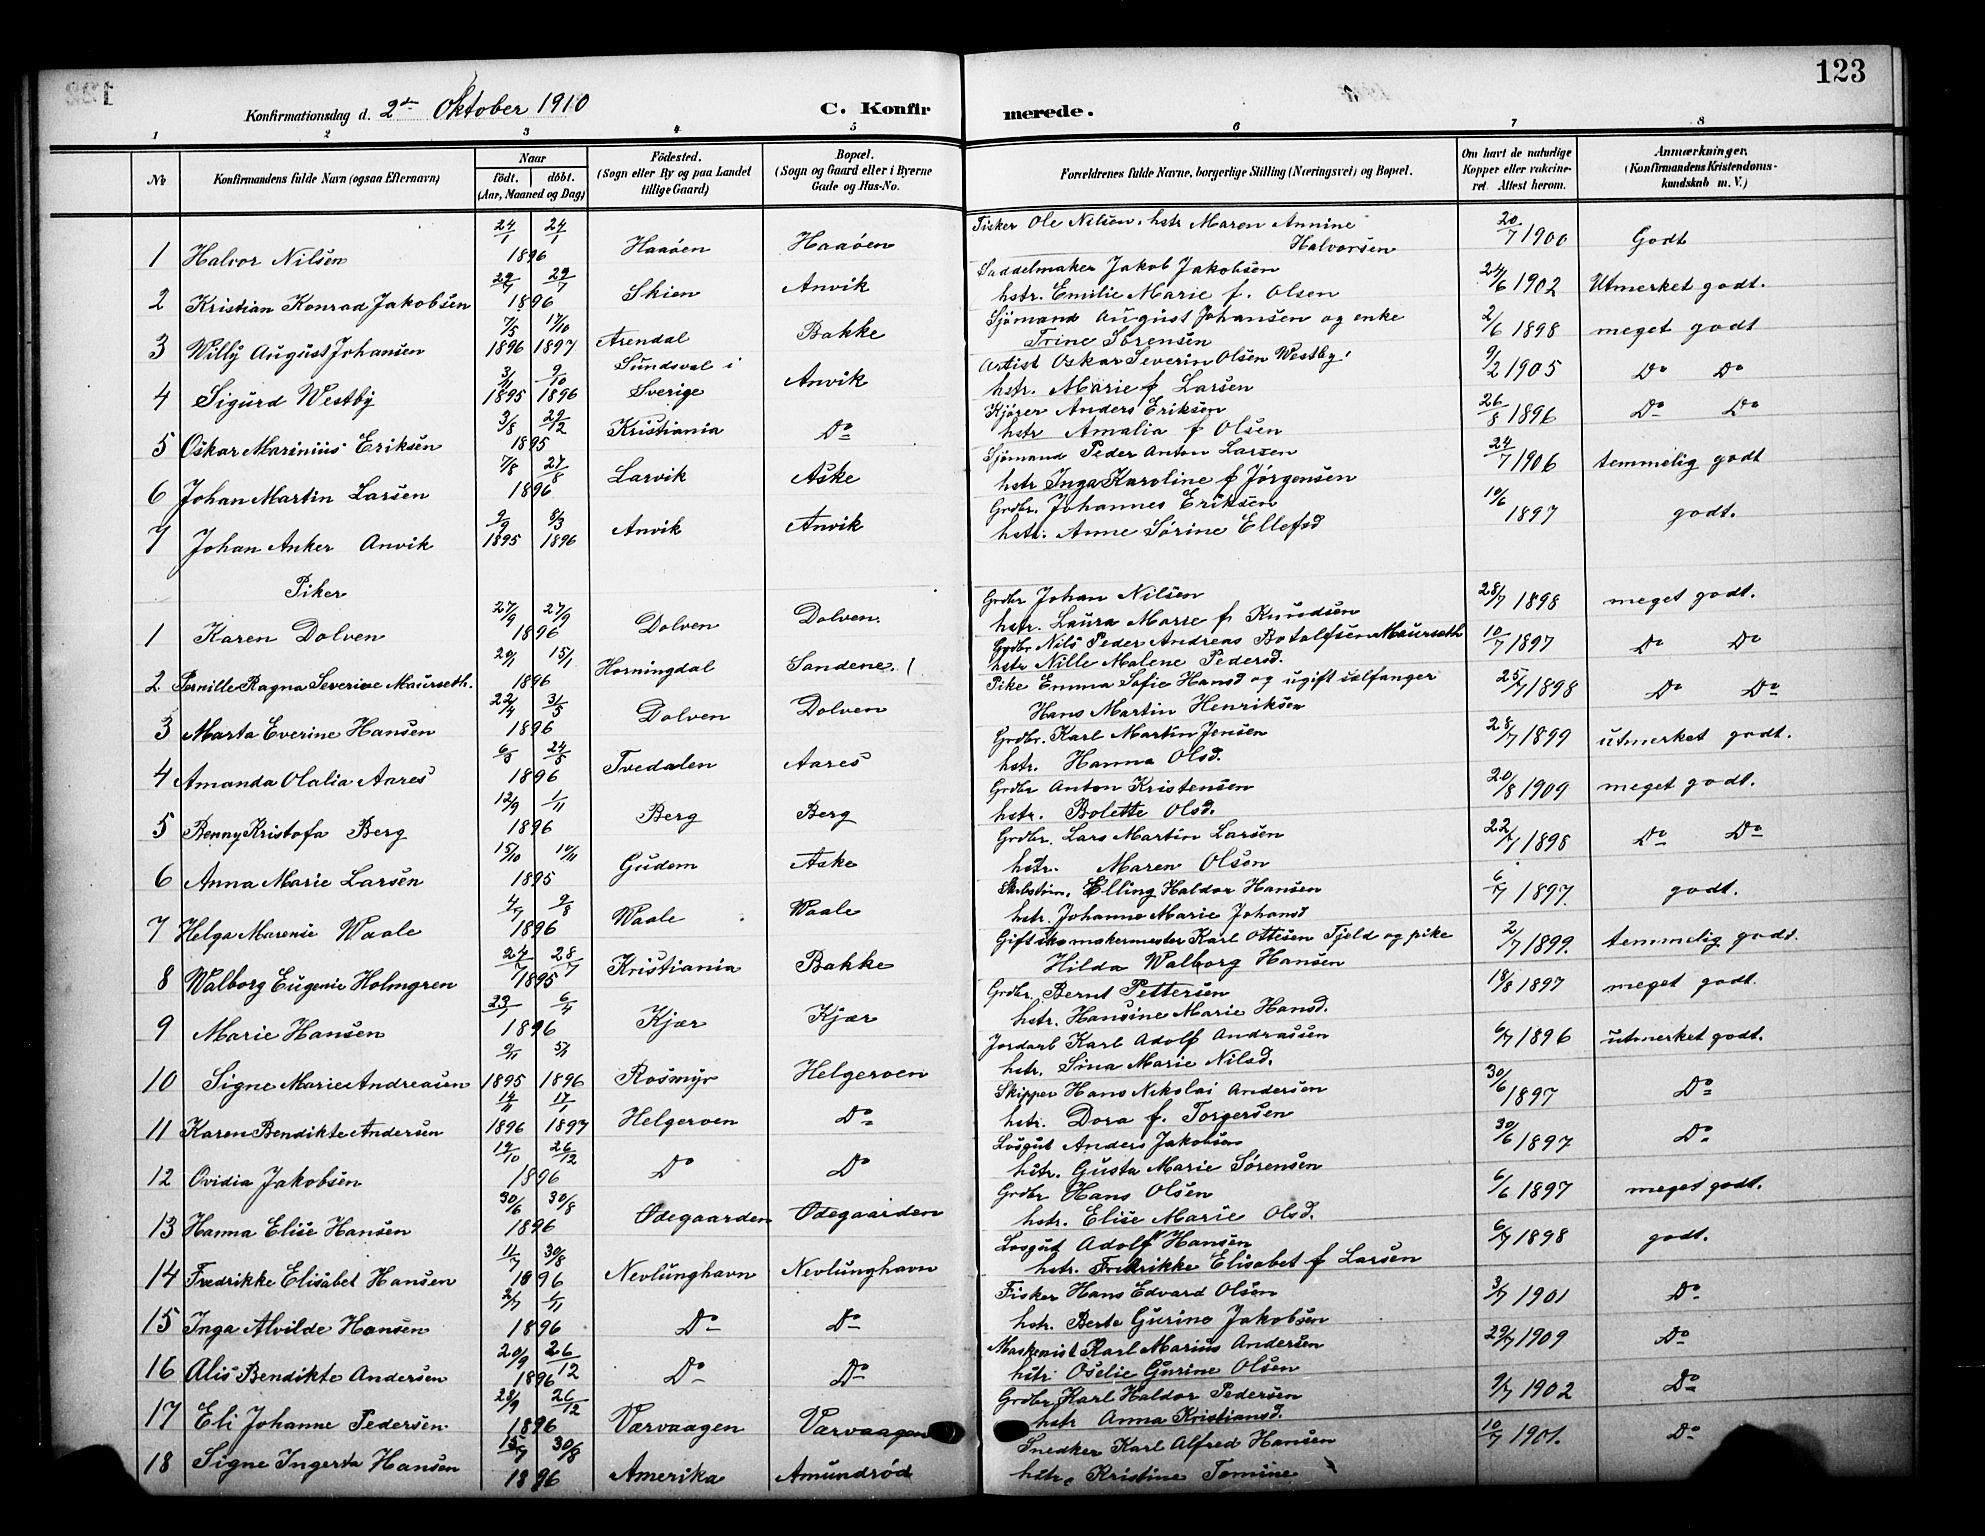 123
Konfirmationsdag d. 2den Oktober 1910 C. Konfirmerede.
1 2 3 4 5 6 7 8
No. Konfirmandens fulde Navn (ogsaa Efternavn) Naar födt. döbt. (Aar, Maaned og Dag) Födested. (Sogn eller By og paa Landet tillige Gaard) Bopæl. (Sogn og Gaard eller i Byerne Gade og Hus-No. Forældrenes fulde Navne, borgerlige Stilling (Næringsvei) og Bopæl. Om havt de naturlige Kopper eller vakcineret. Attest herom. Anmærkninger. (Konfirmandens Kristendomskundskab m. V.)
1 Halvor Nilsen 24/1 24/1 1896 Haaöen Haaöen Fisker Ole Nilsen, hstr Maren Annine Halvorsen 20/7 1900 Godt
2 Kristian Konrad Jakobsen 29/7 1896 Skien Anvik Saddelmaker Jakob Jakobsen hstr. Emilie Marie f. Olsen 24/6 1902 Utmerket godt.
3 Willy August Johansen 7/5 1896 17/10 1897 Arendal Bakke Sjömand August Johansen og enke Trine Sörensen 2/6 1898 meget godt
4 Sigurd Westby 3/11 1895 9/10 1896 Sundsval i Sverige Anvik Artist Oskar Severin Olsen Westby, hstr. Marie f Larsen 9/2 1905 Do Do
5 Oskar Marinius Eriksen 3/8 29/12 1895 Kristiania Do Kjörer Anders Eriksen hstr Amalia f Olsen 26/8 1896 Do Do
6 Johan Martin Larsen 7/8 27/8 1896 Larvik Aske Sjömand Peder Anton Larsen hstr Inga Karoline f Jörgensen 24/7 1906 temmelig godt
7 Johan Anker Anvik 9/9 1895 8/3 1896 Anvik Anvik Grdbr. Johannes Eriksen hstr. Anne Sörine Ellefsd 10/6 1897 godt.
Piker
1 Karen Dolven 27/9 27/9 1896 Dolven Dolven. Grdbr Johan Nilsen hstr. Laura Marie f. Knudsen 28/7 1898 meget godt.
2 Pernille Ragna Severine Maurseth. 15/1 1896 Horningdal Sandene. Grdbr Nils Peder Andreas Botolfsen Maurseth hstr Nille Malene Pedersd. 10/7 1897 Do Do
3 Marta Everine Hansen 22/4 31/5 1896 Dolven Dolven Pike Emma Sofie Hansd og ugift Hans Martin Henriksen 25/7 1898 Do Do
4 Amanda Olalia Aares 24/5 1896 Tvedalen Aares Grdbr. Karl Martin Jensen hstr. Hanna Olsd. 28/7 1899 utmerket godt.
5 Benny Kristofa Berg 12/9 1/11 1896 Berg Berg Grdbr Anton Kristensen hstr. Bolette Olsd. 20/8 1909 meget godt.
6 Anna Marie Larsen 15/10 10/11 1895 Gudem Aske Grdbr. Lars Martin Larsen hstr. Maren Olsen 22/7 1898 Do Do
7 Helga Marensie Waale 4/7 9/8 1896 Waale Waale Elling Haldor Hansen hstr. Johanne Marie Johansd 6/7 1897. godt.
8 Walborg Eugenie Holmgren 24/7 28/7 1895 Kristiania Bakke Gift skomakermester Karl Ottesen Tjeld og pike Hilda Walborg Hansen 2/7 1899. temmelig godt.
9 Marie Hansen 6/4 1896 Kjær Kjær Grdbr. Bernt Pettersen hstr. Hansine Marie Hansd. 18/8 1897 meget godt.
10 Signe Marie Andreasen 9/11 1895 5/1 1896 Rosmyr Helgeroen Jordarb Karl Adolf Andrassen hstr. Sina Marie Nilsd. 6/7 1896 utmerket godt.
11 Karen Bendikte Andersen 14/11 1896 17/1 1897 Helgeroen Do Skipper Hans Nikolai Andersen hstr. Dora f. Torgersen 30/6 1897 Do
12 Ovidia Jakobsen 26/12 1896 Do Do Losgut Anders Jakobsen hstr. Gusta Marie Sörensen 30/6 1897 Do
13 Hanna Elise Hansen 30/6 30/8 1896 Ödegaarden Ödegaarden Grdbr Hans Olsen hstr. Elise Marie Olsd. 6/6 1897 meget godt.
14 Fredrikke Elisabet Hansen 11/7 30/8 1896 Nevlunghavn Nevlunghavn Losgut Adolf Hansen hstr. Fredrikke Elisabet f Larsen 6/7 1898 godt.
15 Inga Alvilde Hansen 2/7 1/11 1896 Do Do Fisker Hans Edvard Olsen hstr. Berte Gurine Jakobsen 3/7 1901 Do
16 Alis Bendikte Andersen 20/9 26/12 1896 Do Do Maskenist Karl Marius Andersen hstr. Oselie Gurine Olsen 29/7 1909 Do
17 Eli Johanne Pedersen 28/9 26/12 1896 Varvaagen Varvaagen Grdbr Karl Haldor Pedersen hstr Anna Kristiansd. 9/7 1902 Do
18 Signe Ingerta Hansen 30/8 1896 Amerika Amundröd Snedker Karl Alfred Hansen hstr. Kristine Tomine 10/7 1901. Do